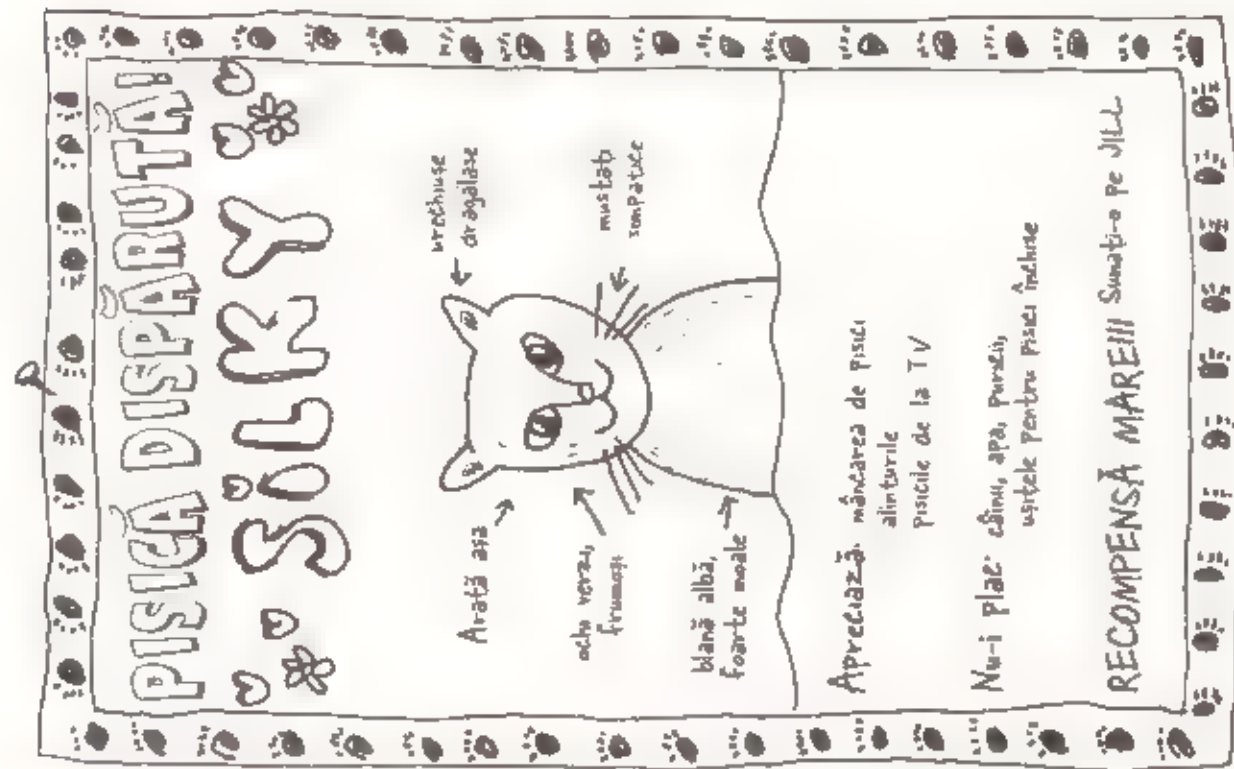 PISICĂ DISPĂRUTĂ!
SILKY
Arată așa
urechiușe
drăgălașe
ochi verzi,
frumoși
mustăți
simpatice
blană albă,
foarte moale
Apreciază: mâncarea de pisici
alinturile
pisicile de la TV
Nu-i plac: câinii, apa, puricii,
ușițele pentru pisici închise
RECOMPENSĂ MARE!!! Sunați-o pe JILL